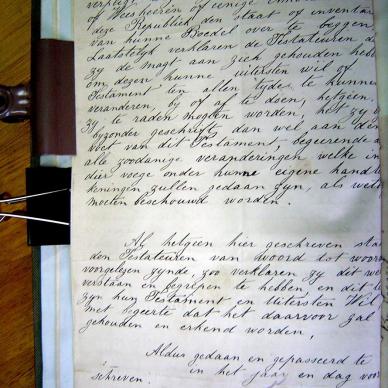 verpligt
of Weesheeren of eenige
deze Republiek den staat of inventar
van hunne Boedel over te leggen
Laatstelijk verklaren de Testateuren de
zy de magt aan zich gehouden heb
om dezen hunne uitersten wil of
Testament ten allen tyde te kunne
veranderen, by of af te doen, hetgeen
zy te raden mogten worden, het zy
byzonder geschrift, dan wel aan den
voet van dit Testament, begeerende
alle zoodanige veranderingen welke in
dier voege onder hunne eigene hand
keningen zullen gedaan zyn, als wett
moeten beschouwd worden.
Al hetgeen hier geschreven staa
den Testateuren van woord tot woord
voorgelezen zynde, zoo verklaren zy dit we
verstaan en begrepen te hebben, en dit t
zyn hun Testament en Uitersten Wil
met begeerte dat het daarvoor zal
gehouden en erkend worden,
Aldus gedaan en gepasseerd te
in het jaar en dag voor
schreven.